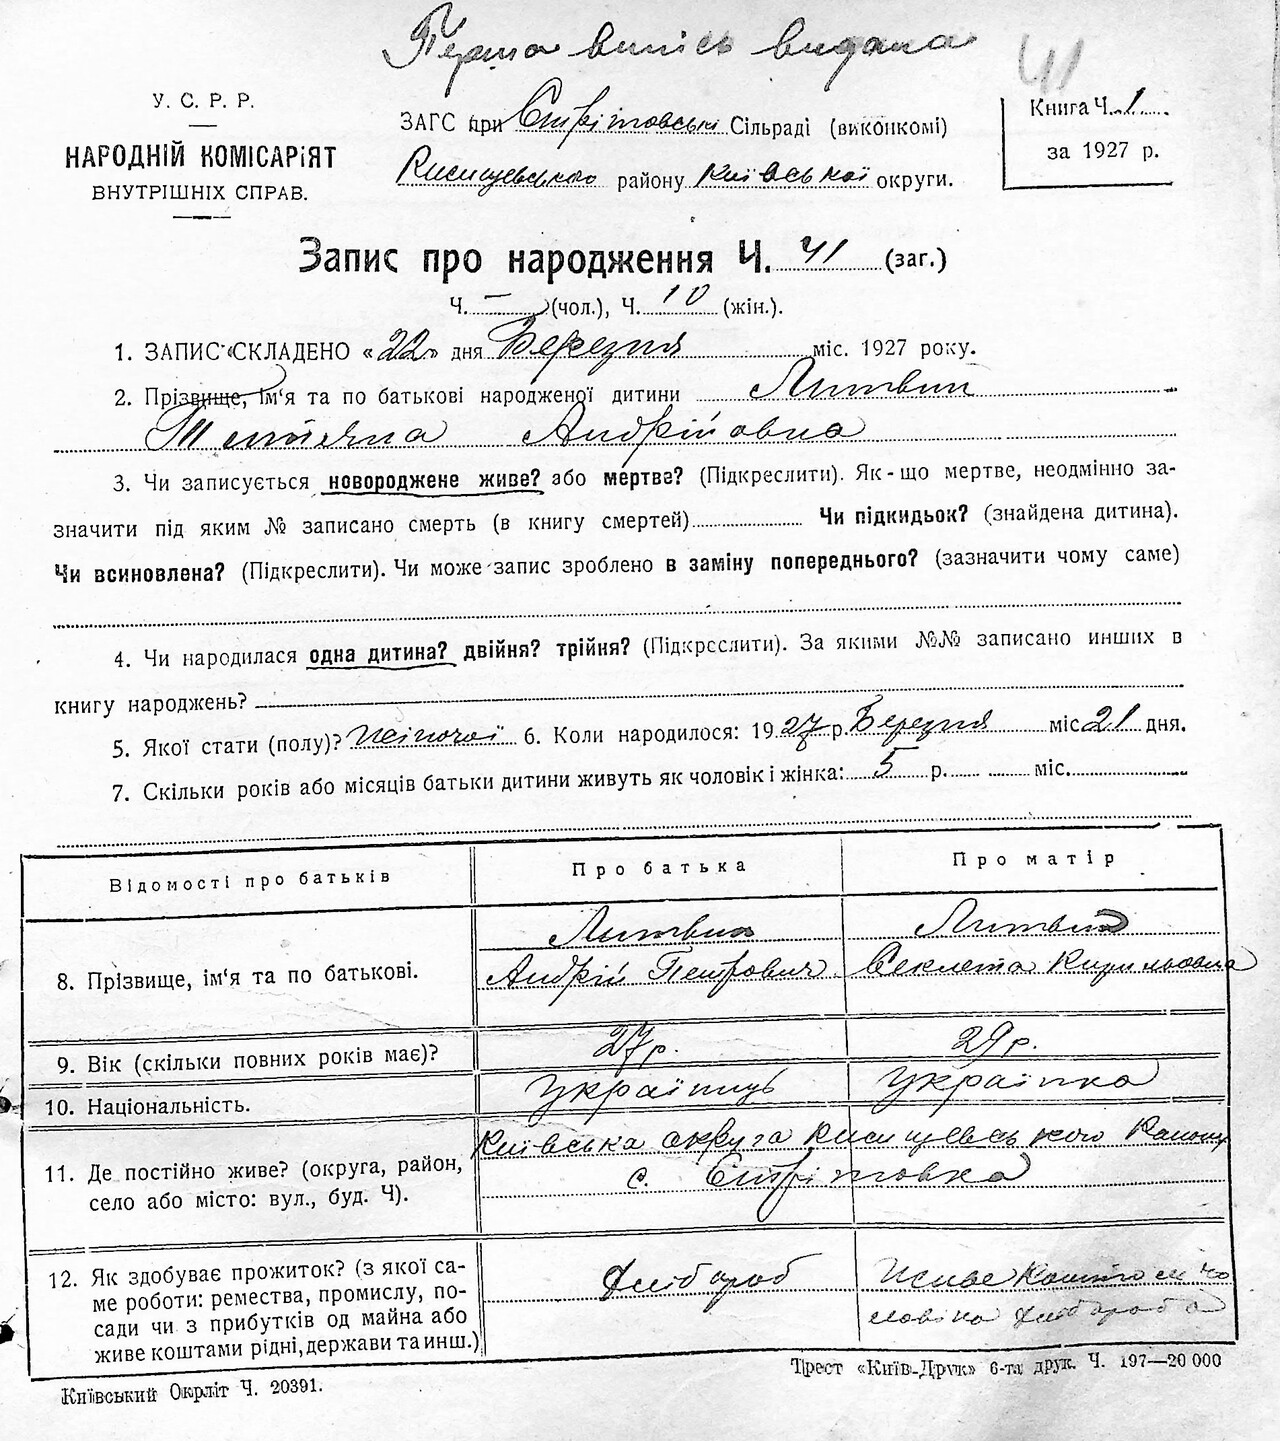 Перша випись видана
41
У. С. Р. Р.
НАРОДНІЙ КОМІСАРІЯТ
ВНУТРІШНІХ СПРАВ.
ЗАГС при Стрітовські Сільраді (виконкомі)
району Київської округи.
Книга Ч. 1
за 1927 р.
Запис про народження Ч. 41 (заг.)
Ч. — (чол.), Ч. 10 (жін.).
1. ЗАПИС СКЛАДЕНО «22» дня Березня міс. 1927 року.
2. Прізвище, ім'я та по батькові народженої дитини Литвин
Тетяна Андрійовна
3. Чи записується новороджене живе? або мертве? (Підкреслити). Як-що мертве, неодмінно за-
значити під яким № записано смерть (в книгу смертей) Чи підкидьок? (знайдена дитина).
Чи всиновлена? (Підкреслити). Чи може запис зроблено в заміну попереднього? (зазначити чому саме)
4. Чи народилася одна дитина? двійня? трійня? (Підкреслити). За якими №№ записано инших в
книгу народжень?
5. Якої стати (полу)? Жіночої 6. Коли народилося: 1927 р. Березня міс. 21 дня.
7. Скільки років або місяців батьки дитини живуть як чоловік і жінка: 5 р. міс.
Відомості про батьків Про батька Про матір
8. Прізвище, ім'я та по батькові. Литвин Литвин
Андрій Петрович Секлета Кирильовна
9. Вік (скільки повних років має)? 27 р. 29 р.
10. Національність. Українець Українка
11. Де постійно живе? (округа, район,
село або місто: вул., буд. Ч).
Київська округа
с. Стрітовка
12. Як здобуває прожиток? (з якої са-
ме роботи: ремества, промислу, по-
сади чи з прибутків од майна або
живе коштами рідні, держави та инш.)
Хлібороб
Живе коштом чо
ловіка хлібороба
Київський Окрліт Ч. 20391.
Трест «Київ-Друк» 6-та друк. Ч. 197—20 000